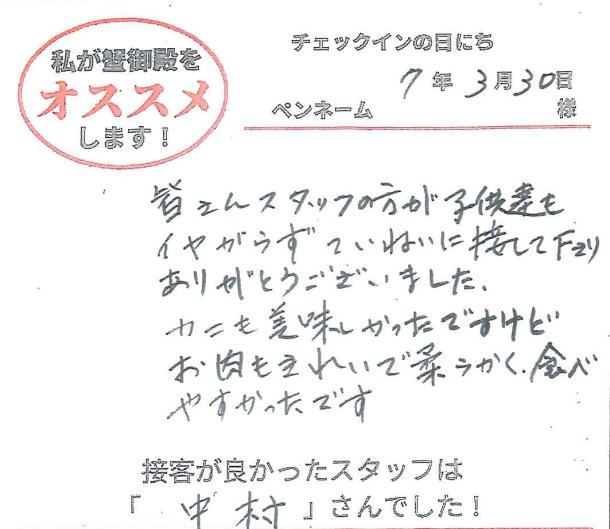 私が蟹御殿を
オススメ
します！
チェックインの日にち
7年3月30日
ペンネーム 様
皆さんスタッフの方が子供達も
イヤがらずていねいに接して下さり
ありがとうございました.
カニも美味しかったですけど
お肉もきれいで柔らかく.食べ
やすかったです
接客が良かったスタッフは
「 中村 」さんでした！